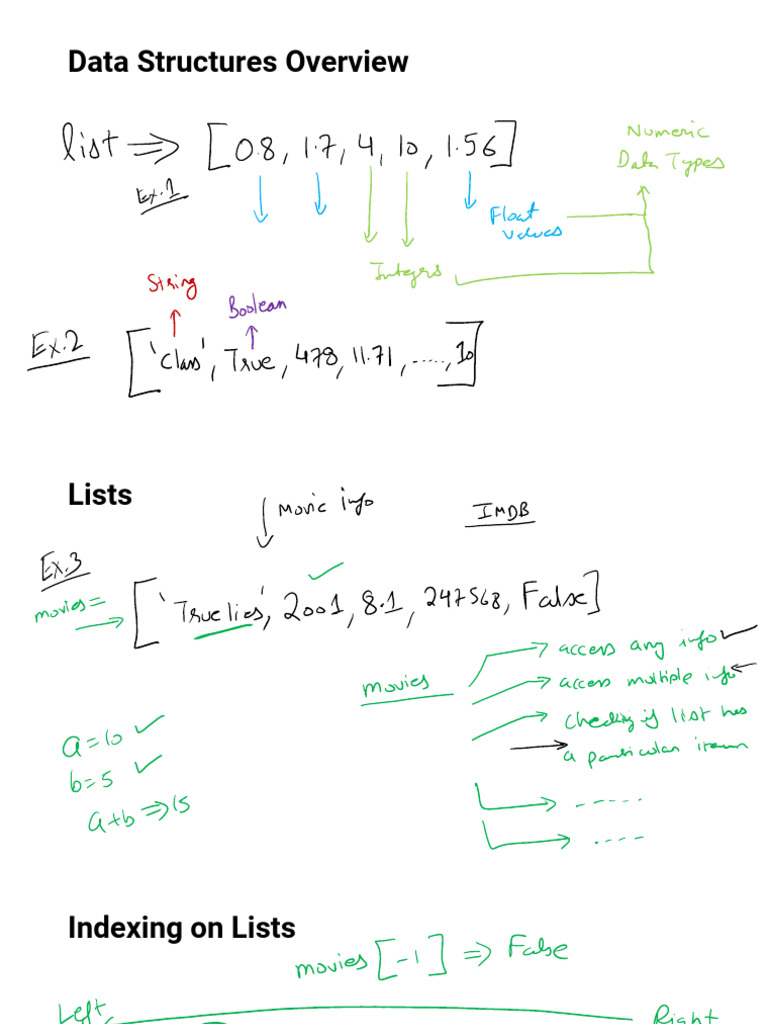 Data Structures Overview
list ⇒ [0.8, 1.7, 4, 10, 1.56]
Ex.1
Numeric
Data Types
Float
values
Integers
String
Boolean
Ex.2
['Class', True, 478, 11.71, ....., 10]
Lists
Movie info
IMDB
Ex.3
movies =
['True lies', 2001, 8.1, 247568, False]
movies
access any info
access multiple info
checking if list has
a particular item
a=10
b=5
a+b ⇒ 15
------
----
Indexing on Lists
movies [-1] ⇒ False
Left
Right